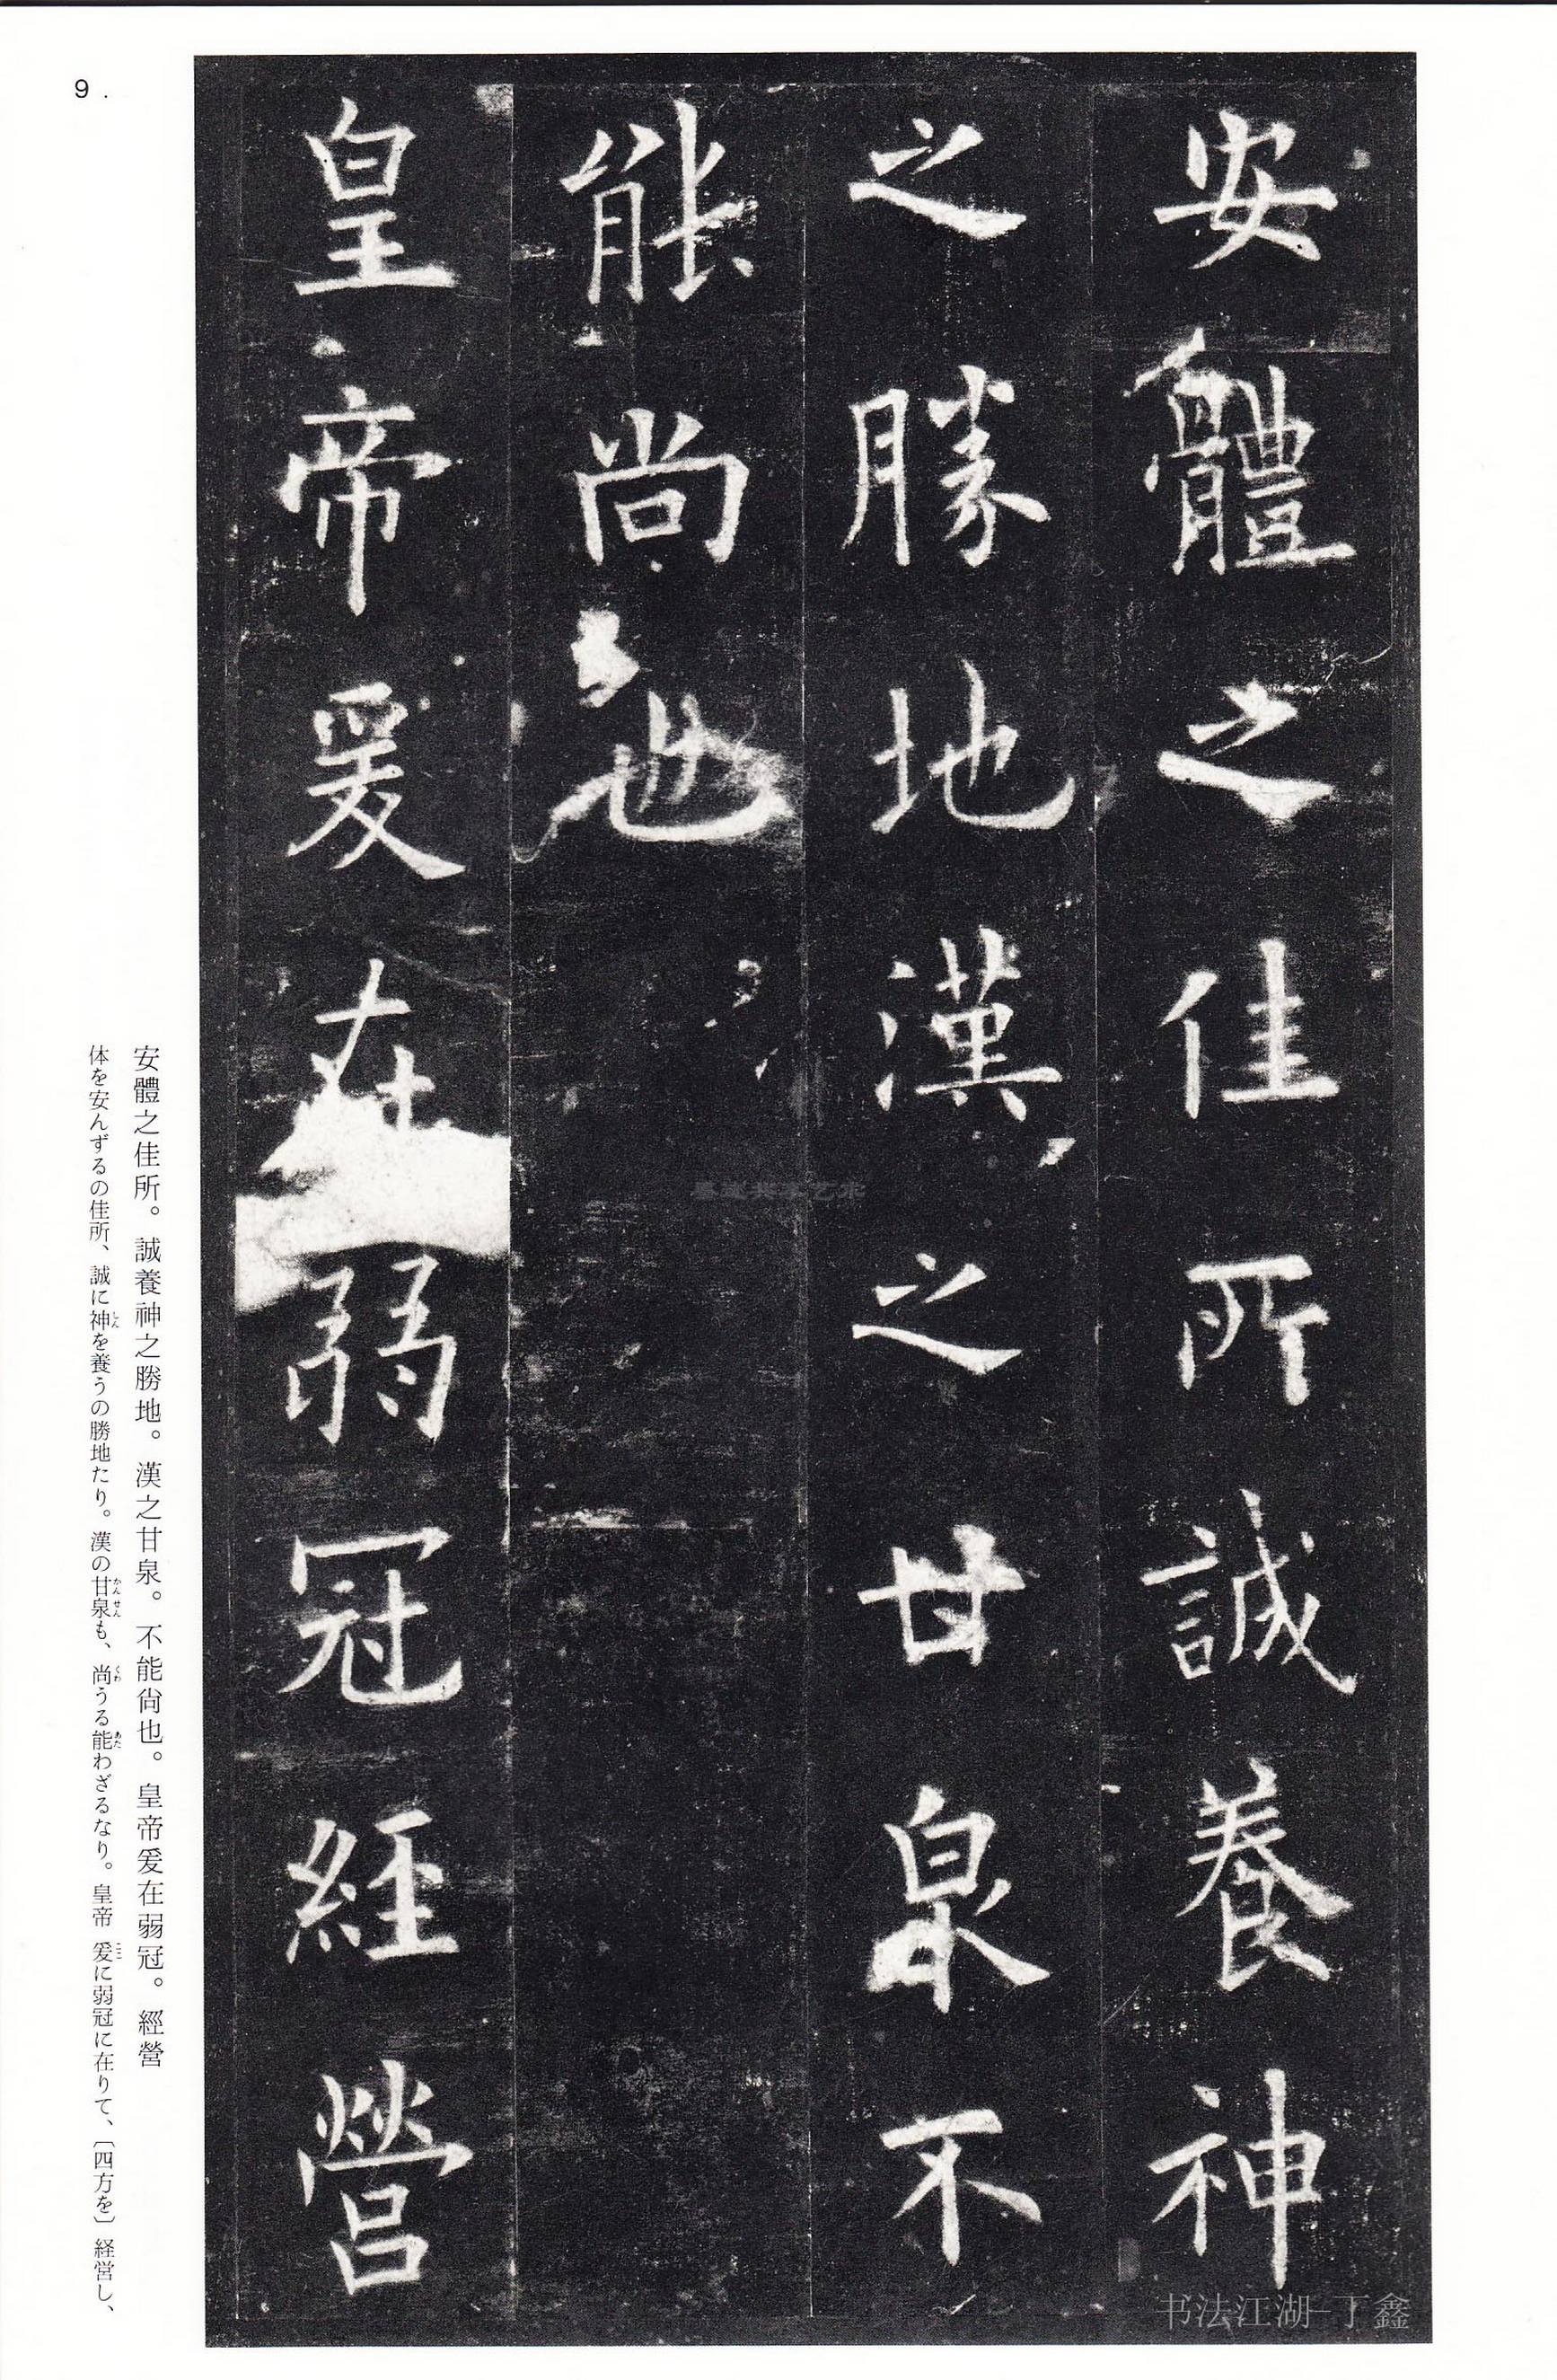 9.
安體之佳所誠養神
之勝地漢之甘泉不
能尚也
皇帝爰在弱冠經營
安體之佳所。誠養神之勝地。漢之甘泉。不能尙也。皇帝爰在弱冠。經營
体を安んずるの佳所、誠に神しんを養うの勝地たり。漢の甘泉かんせんも、尚くわうる能あたわざるなり。皇帝 爰ここに弱冠に在りて、〔四方を〕経営し、
书法江湖-丁鑫